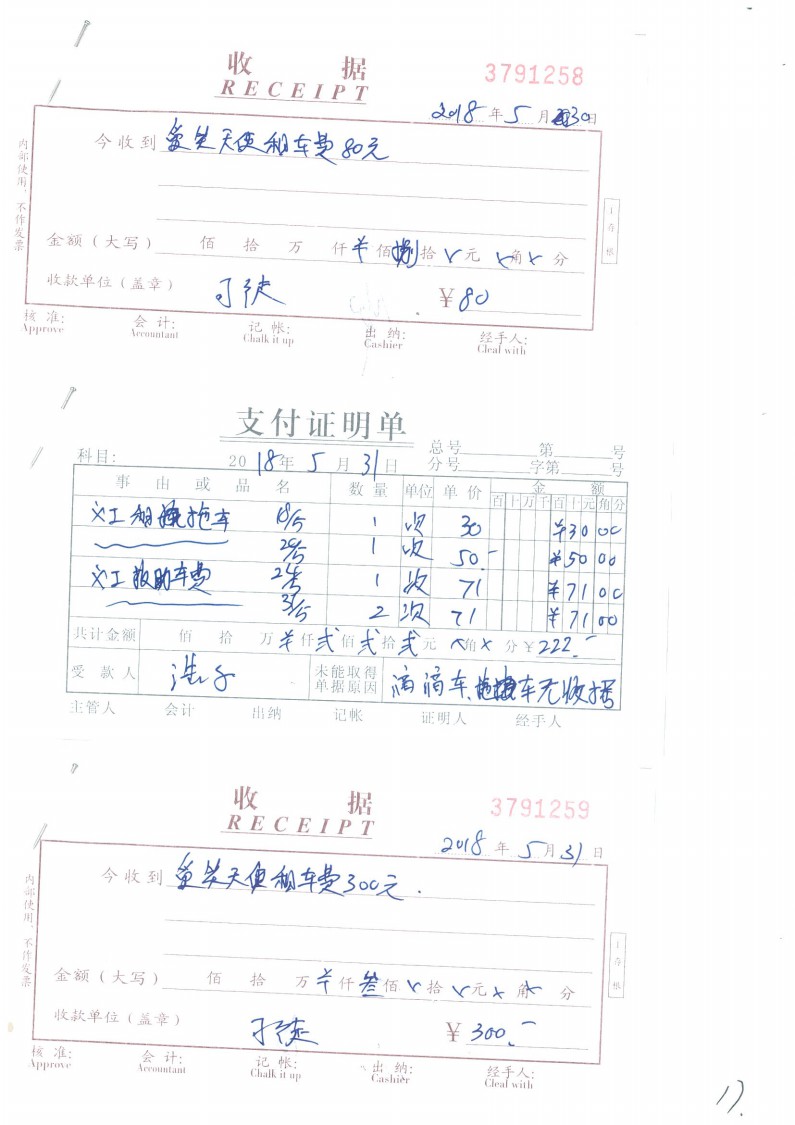 收 据
RECEIPT
3791258
2018 年 5 月 30 日
今收到 天使租车费80元
金额（大写） 佰 拾 万 仟 ¥ 佰 捌 拾 元 角 分
收款单位（盖章） ￥80
核 准: 会 计: 记 帐: 出 纳: 经手人:
Approve Accountant Chalk it up Cashier Cleal with
内部使用、不作发票
支付证明单
科目: 2018年 5 月 31 日 总号 第 号
分号 字第 号
事 由 或 品 名 数 量 单位 单 价 金 额
百 十 万 千 百 十 元 角 分
义工租 拖车 18/5 1 次 30 ¥30 00
1 次 50.- ¥50 00
义工 助车费 1 次 71 ¥71 00
31/5 2 次 71 ¥71 00
共计金额 佰 拾 万 ¥ 仟 贰 佰 贰 拾 贰 元 × 角 × 分 ¥ 222.-
受 款 人 未能取得单据原因 滴滴车、 车无收据
主管人 会计 出纳 记帐 证明人 经手人
收 据
RECEIPT
3791259
2018 年 5 月 31 日
今收到 天使租车费300元.
金额（大写） 佰 拾 万 ¥ 仟 叁 佰 拾 元 × 角 × 分
收款单位（盖章） ￥ 300.-
核 准: 会 计: 记 帐: 出 纳: 经手人:
Approve Accountant Chalk it up Cashier Cleal with
内部使用、不作发票
17.